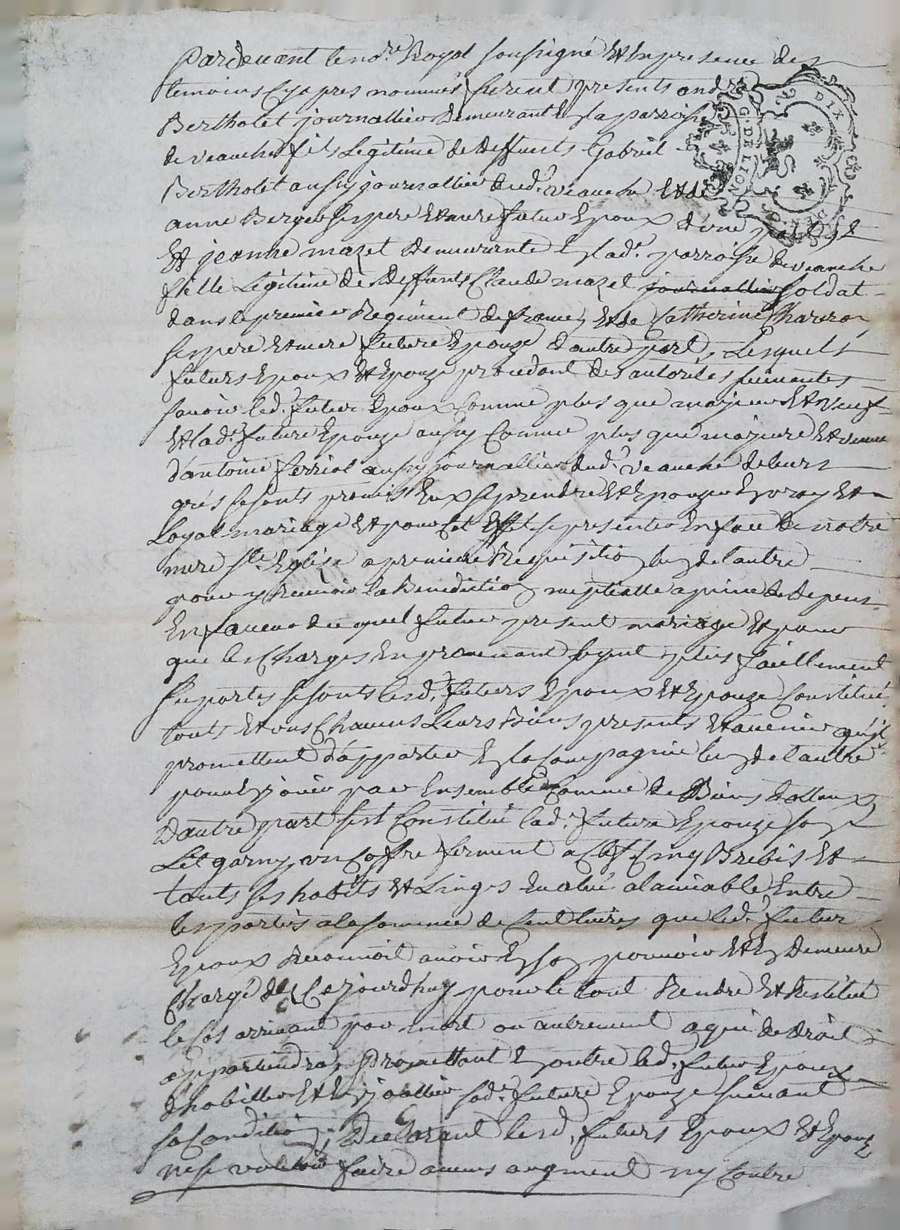 Pardevant le no.re Royal soussigné Et En presence des
temoins Cy apres nommés furent presents andré
Bertholet journallier Demeurant En la parroisse
de veauche fils Legitime de deffunts Gabriel
Bertholet aussy journallier dud. veauche Et de
anne Berger ses pere Et mere futur Epoux d'une part
Et jeanne mazet demeurante En lad. parroisse de veauche
fille Legitime de deffunts Claude mazet soldat
dans le premier Regiment de france, Et de Catherine
ses pere Et mere future Epouze d'autre part, Lesquels
futurs Epoux Et Epouze procedant des autorités suivantes
savoir led. futur Epoux Comme plus que majeur Et veuf
Et lad. future Epouze aussy Comme plus que majeure Et veuve
d'antoine ferriol aussy journallier dud. veauche de leurs
grés se sont promis Eux se prendre Et Epouzer En vray Et
Loyal mariage Et pour cet Effet se presenter En face de notre
mere S.te Eglise a premiere Requisition L'un de l'autre
pour y Recevoir la Benediction nuptialle a peine de depens
En faveur duquel futur present mariage Et pour
que les Charges En provenant soyent plus facillement
suportés se sont lesd. futurs Epoux Et Epouze Constitué
touts Et uns Chacuns Leurs Biens presents Et avenir qu'ils
promettent d'apporter En la Compagnie l'un de l'autre
pour En jouir par Ensemble Comme de Biens dottaux
D'autre part s'est Constitué lad. future Epouze son
Lit garny, un Coffre fermant a Clef Cinq Brebis Et
touts ses habits Et Linges Evalué a l'amiable Entre
les parties a la somme de Cent livres que led. futur
Epoux Reconnoit avoir En son pouvoir Et En Demeure
Chargé des Ce jourdhuy pour le tout Rendre Et Restituer
le Cas arrivant par mort ou autrement a qui de droit
appartiendra, Promettant En outre led. futur Epoux
d'habiller Et Enjoallier sad. future Epouze suivant
sa Condition, Declarant lesd. futurs Epoux Et Epouze
ne se vouloir faire aucuns augment ny Contre
DIX
G. DE LION